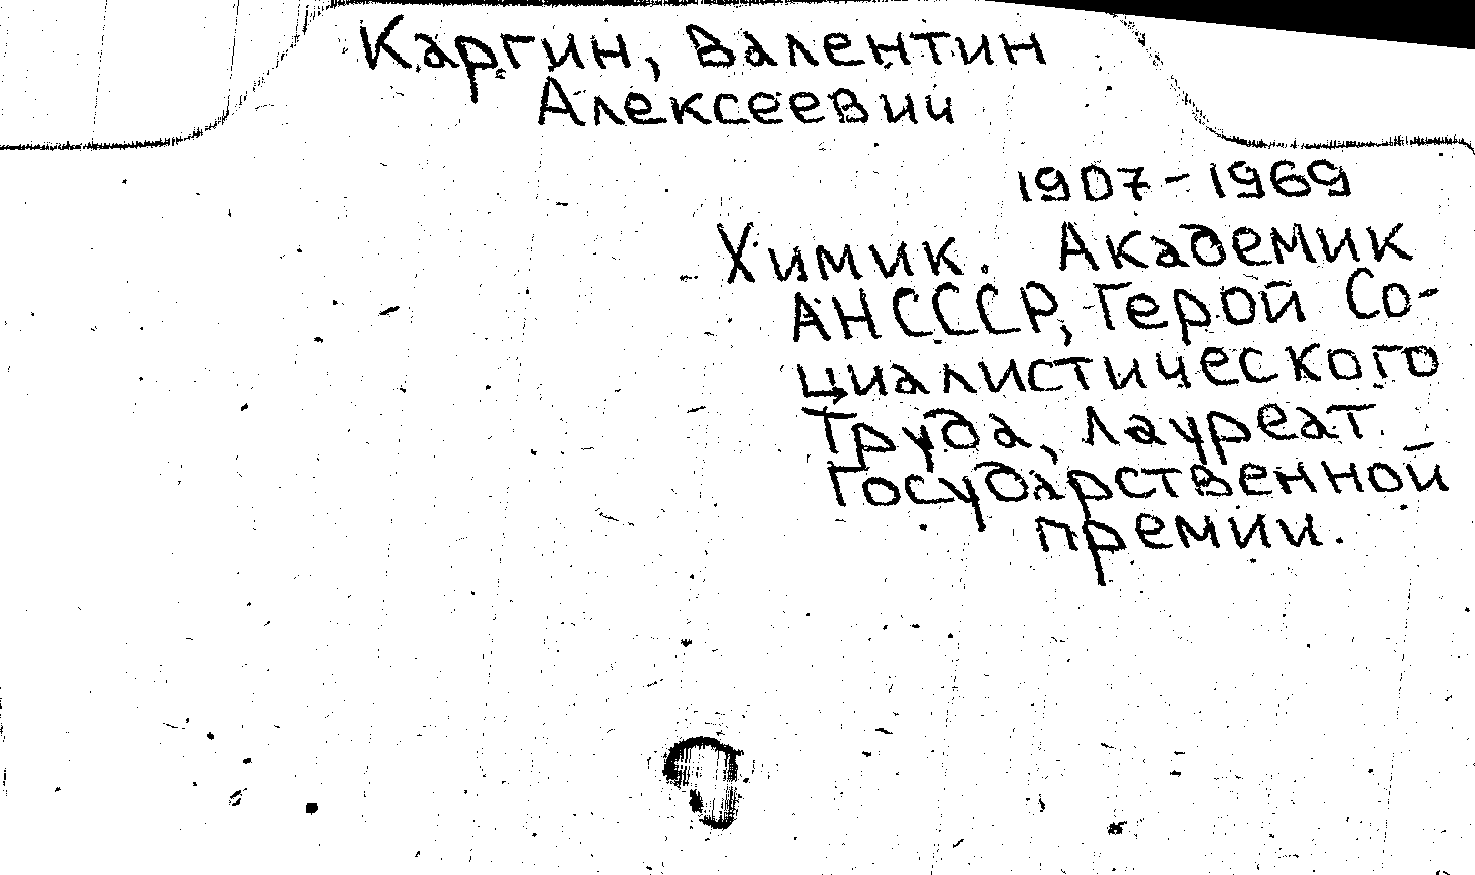 Каргин, Валентин
Алексеевич
1907-1969
Химик. Академик
АН СССР, Герой Со-
циалистического
Труда, лауреат
Государственной
премии.